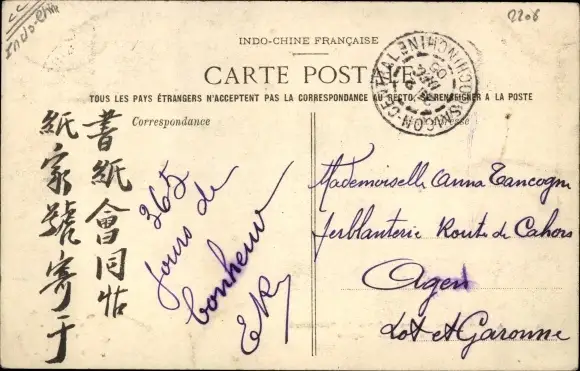 Indo-Chine
2206
INDO-CHINE FRANÇAISE
CARTE POSTALE
TOUS LES PAYS ÉTRANGERS N'ACCEPTENT PAS LA CORRESPONDANCE AU RECTO, SE RENSEIGNER A LA POSTE
SAIGON-CENTRAL
COCHINCHINE
Correspondance
Adresse
書紙會同帖
紙家號寄于
365
Jours de
bonheur
Mademoiselle Anna Tancogne
ferblanterie Route de Cahors
Agen
Lot et Garonne